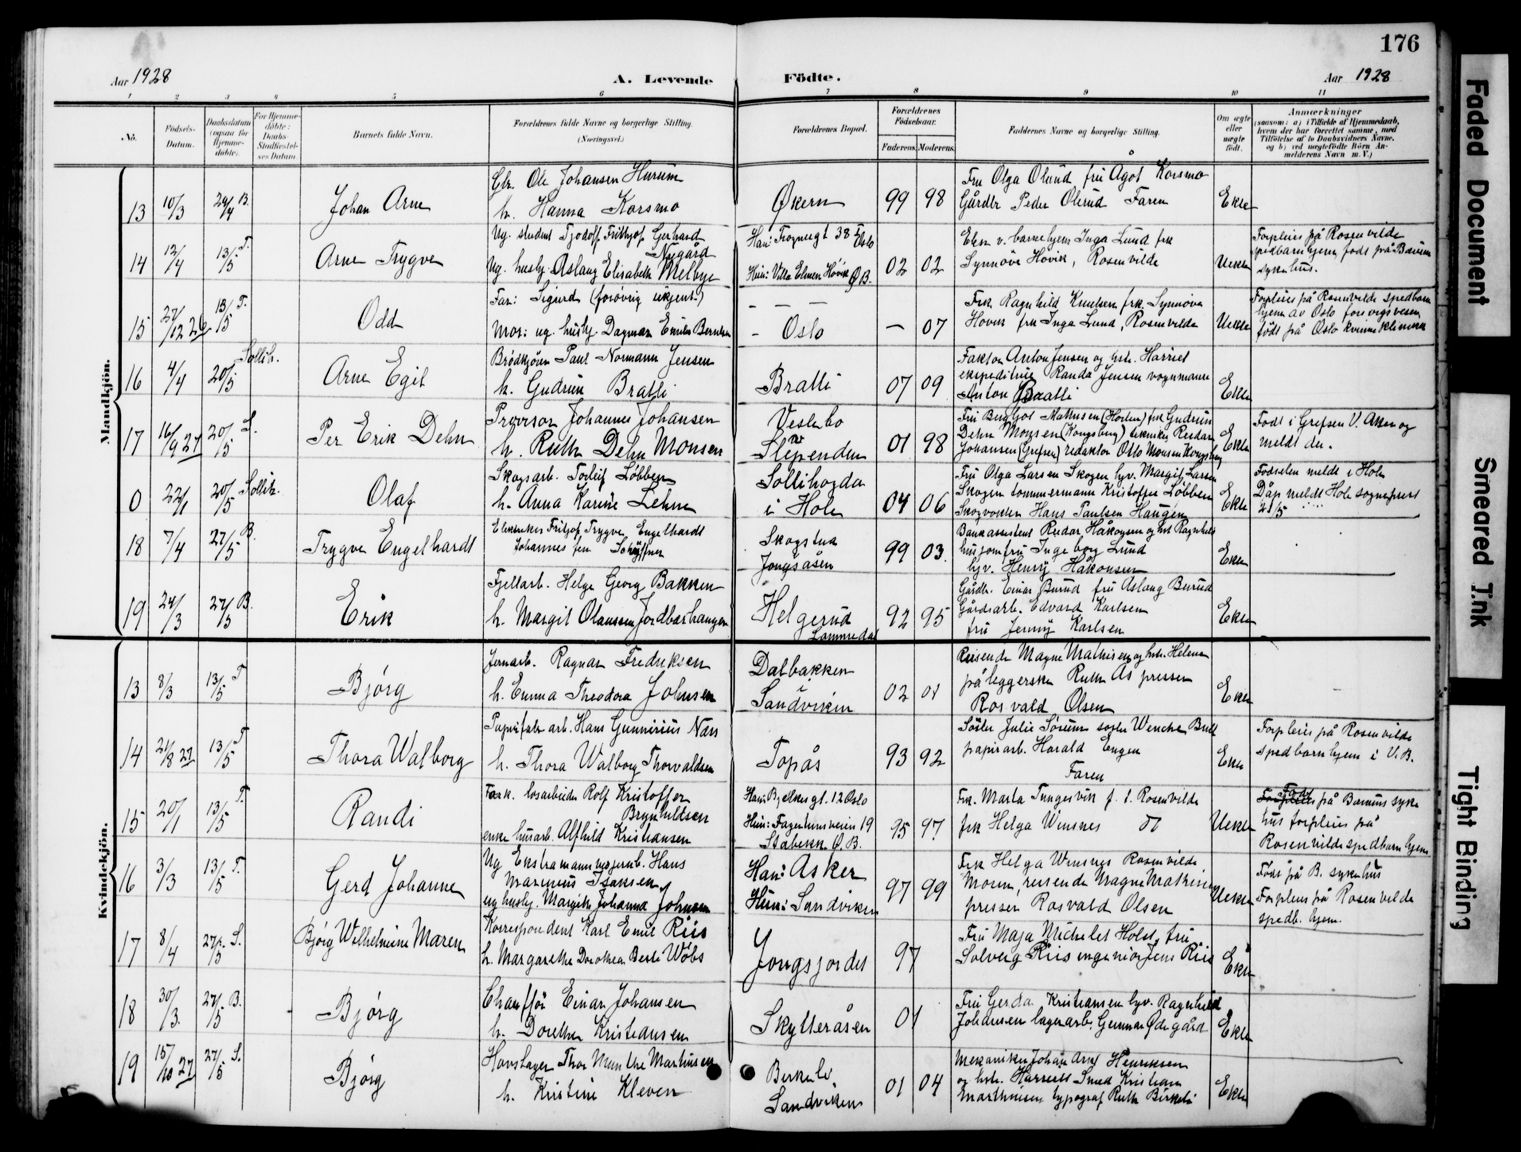 176
Aar 1928
A. Levende
Födte.
Aar 1928
1 2 3 4 5 6 7 8 9 10 11
No.
Födsels-
Datum.
Daabsdatum
(ogsaa for
Hjemme-
döbte).
For Hjemme-
döbte:
Daabs-
Stadfæstel-
ses Datum.
Barnets fulde Navn.
Forældrenes fulde Navne og borgerlige Stilling.
(Næringsvei.)
Forældrenes Bopæl.
Forældrenes
Födselsaar.
Faderens. Moderens.
Faddernes Navne og borgerlige Stilling.
Om ægte
eller
uægte
født.
Anmærkninger
Mandkjön.
13 10/3 29/4 B. Johan Arne
Ole Johansen Hurum
h. Hanna Korsmo
Økern 99 98
Fru Olga Ølerud fru Ågot Korsmo
Gårdbr Peder Ølerud Faren
Ekte
14 12/4 13/5 T. Arne Trygve
Ug. student Tjodolf Frithjof Gerhard
Nygård
Ug. husbg. Aslaug Elisabeth Melbye
Han: Frognergt 38 Oslo
Hun: Villa Elmen Høvik Ø B. 02 02
Elev v. barnehjem Inga Lund frk
Synnöve Hovik, Rosenvilde
Uekte
Forpleies på Rosenvilde
spedbarnhjem, født på Bærum
sykehus.
15 27/12 26 13/5 T. Odd
Far: Sigurd (forövrig ukjent.)
Mor: ug. husbg. Dagmar Emilie Berntsen
– – –
– Oslo – 07
Frk. Ragnhild Knutsen frk. Synnöve
Hovik frk Inga Lund, Rosenvilde
Uekte
Forpleies på Rosenvilde spedbarn
hjem av Oslo forsorgsvesen,
født på Oslo kvinneklinikk
16 4/4 20/5 Sollih. Arne Egil
Brödkjörer Paul Normann Jensen
h. Gudrun Bratli
Bratli 07 09
Faktor Anton Jensen og hstr. Harriet
ekspeditrise Randa Jensen vognmann
Anton Bratli
Ekte
17 16/9 27 20/5 S. Per Erik Dehn
Provisor Johannes Johansen
h. Ruth Dehn Monsen
Veslebo
pr
Slependen 01 98
Fru Bergljot Mathisen (Horten) frk Gudrun
Dehn Monsen (Kongsberg) tekniker Reidar
Johansen (Grefsen) redaktør Otto Monsen Kongsberg
Ekte
Født i Grefsen V. Aker og
meldt der.
0 22/1 20/5 Sollih. Olaf
Skogsarb. Torleif Löbben
h. Anna Karine Lehne
Sollihogda
i Hole 04 06
Fru Olga Larsen Skogen hjv. Margit Larsen
Skogen tømmermann Kristoffer Löbben
Skogvokter Hans Paulsen Haugen
Ekte
Födselen meldt i Hole
Dåp meldt Hole sogneprest
21/5
18 7/4 27/5 B. Trygve Engelhardt
Frithjof Trygve Engelhardt
Johannesen
Skogstua
Jongsåsen 99 03
Bankassistent Reidar Håkonsen og hst Ragnhild
husjomfru Ingeborg Lund
hjv. Henry Håkonsen
Ekte
19 24/3 27/5 B. Erik
Fjellarb. Helge Georg Bakken
h. Margit Olaussen Jordbærhaugen
Helgerud
Lommedal 92 95
Gårdbr. Einar Burud fru Aslaug Burud
Gårdsarb. Edvard Karlsen
fru Jenny Karlsen
Ekte
Kvindekjön.
13 8/3 13/5 T Bjørg
Jernarb. Ragnar Fredriksen
h. Emma Theodora Johnsen
Dalbakken
i
Sandviken 02 01
Reisende Magne Mathisen og hstr. Helene
påleggerske Ruth Ås presser
Rosvald Olsen
Ekte
14 21/8 27 13/5 T Thora Walborg
Papirfabr arb. Hans Gunnerius Næss
h. Thora Walborg Thorvaldsen
Topås 93 92
Søster Julie Sørum søster Wenche Bull
papirarb. Harald Engen
Faren
Ekte
Forpleies på Rosenvilde
spedbarnhjem i V. B.
15 20/1 13/5 T. Randi
Frask. losarbeider Rolf Kristoffer
Brynhildsen
enke husarb. Alfhild Kristiansen
Han: Bjelkes gt. 12 Oslo
Hun: Fagerheimsveien 19
Stabekk Ø. B. 95 97
Frk. Marta Tungesvik f. t. Rosenvilde
frk Helga Winsnes
Uekte
Født
på Bærums syke
hus forpleies på
Rosenvilde spedbarnhjem
16 3/3 13/5 T. Gerd Johanne
Ug Ekstramann Hans
Marinius Isaksen
ug husbg. Margith Johanna Johnsen
Han: Asker
Hun: Sandviken 97 99
Frk Helga Winsnes Rosenvilde
Moren, reisende Magne Mathisen
presser Rosvald Olsen
Uekte
Født på B. sykehus
Forpleies på Rosenvilde
spedb. hjem.
17 8/4 27/5 S. Bjørg Wilhelmine Maren
Korrespondent Karl Emil Riis
h. Margarethe Dorothea Berte Wöbs
Jongsjordet 97
Fru Maja Michelet Holst, fru
Solveig Riis ingeniør Jens Riis
Ekte
18 30/3 27/5 B. Bjørg
Chauffør Einar Johansen
h. Dorthea Kristiansen
Skytteråsen 01
Fru Gerda Kristiansen hjv. Ragnhild
Johansen lagerarb. Gunnar Ødegård
Ekte
19 15/10 27 27/5 S. Bjørg
Hovslager Thor Munthe Martinsen
h. Kristine Kleven
Birkelv.
Sandviken 01 04
Mekaniker Johan Arnf Henriksen
og hstr. Harriett Smed Kristian
Marthinsen typograf Ruth Birkeli
Ekte
Faded Document
Smeared Ink
Tight Binding